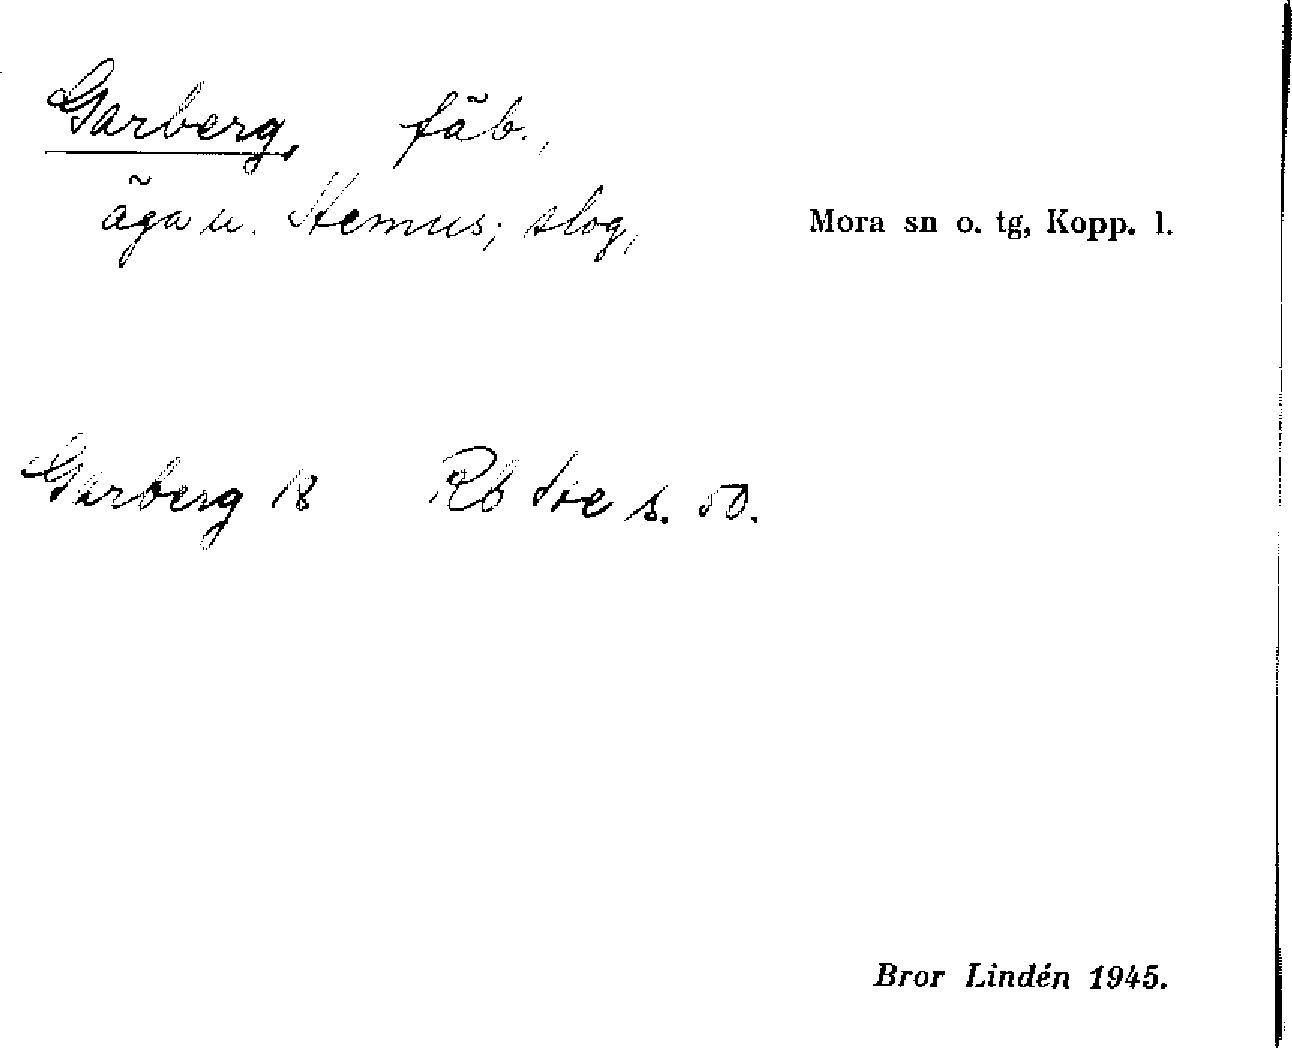 Garberg, fäb.,
äga u. Hemus; slog, Mora sn o. tg, Kopp. l.
Garberg 18 Rb s. 50.
Bror Lindén 1945.